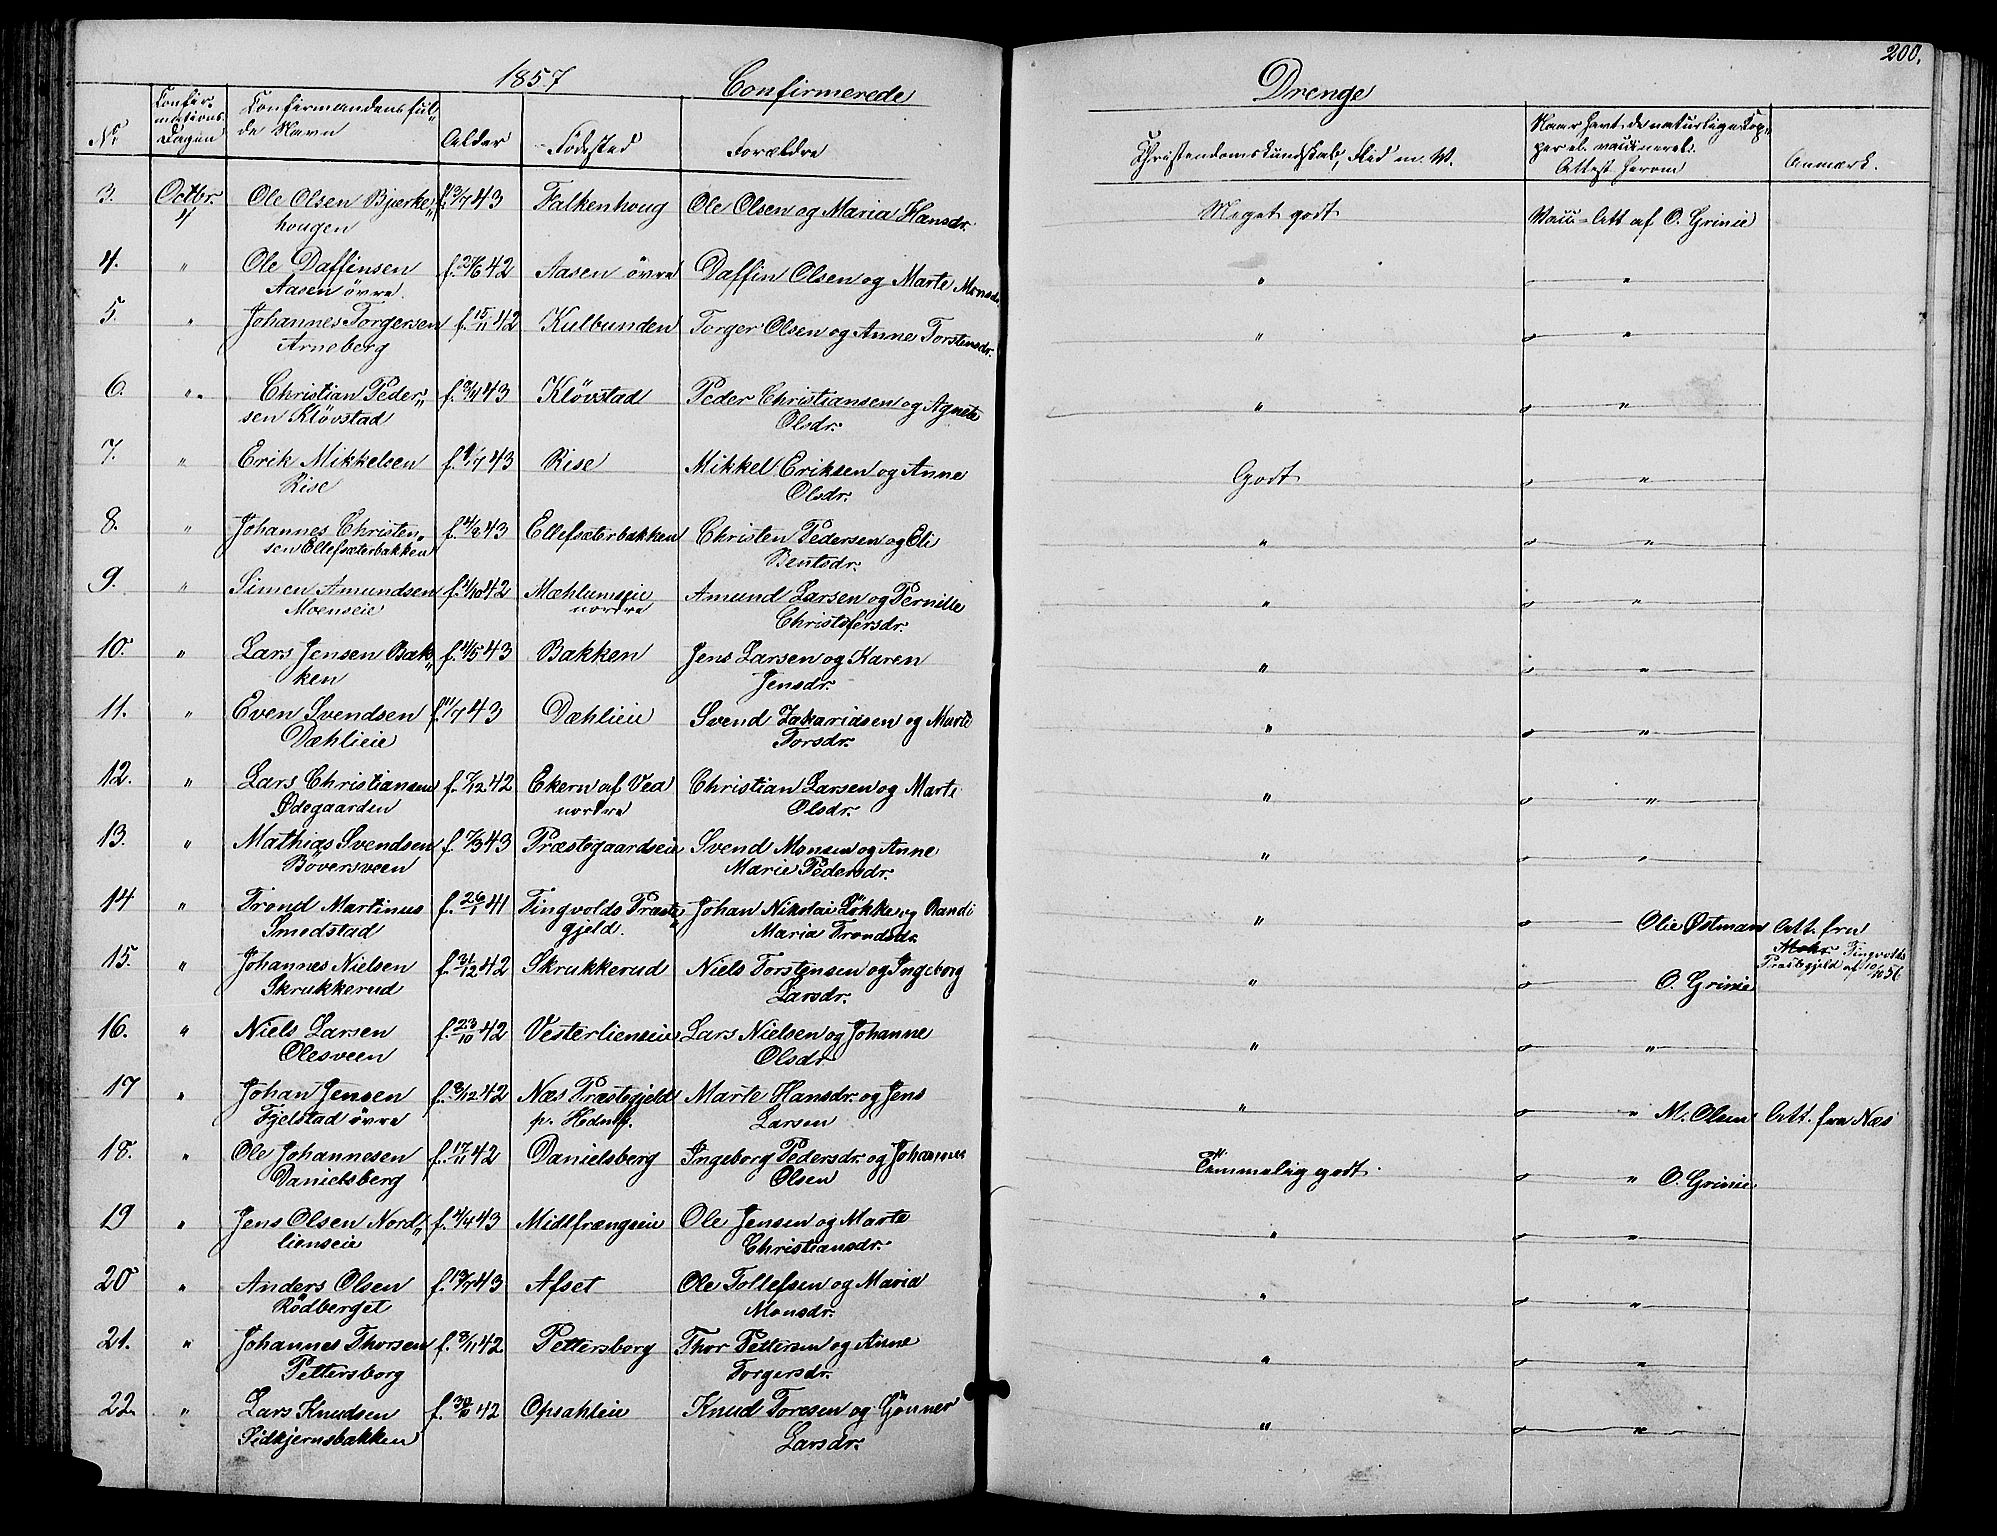 200.
1857 Confirmerede Drenge
No. Confirmations Dagen Confirmandens fulde Navn Alder Fødested Forældre Christendomskundskab, Flid m. V. Naar havt de naturlige Kopper el. vaccineret. Attest herom Anmærk.
3. Octbr. 4 Ole Olsen Bjerke„ 43 Falkenhoug Ole Olsen og Maria Hansdr. Meget godt Vacc. Att af O. Grinie
hougen
4. " Ole Daffinsen 42 Aasen övre Daffin Olsen og Marte Monsdr. " "
Aasen övre.
5. " Johannes Torgersen f. 15/11 42 Kulbunden Torger Olsen og Anne Torstensdr. " "
Arneberg
6. " Christian Peder„ 43 Klövstad Peder Christiansen og Agnete " "
sen Klövstad Olsdr.
7. " Erik Mikkelsen 43 Rise Mikkel Eriksen og Anne Godt "
Rise Olsdr.
8. " Johannes Christen„ 43 Ellefsæterbakken Christen Pedersen og Eli " "
sen Ellefsæterbakken Bentsdr.
9. " Simen Amundsen 42 Mæhlumseie Amund Larsen og Pernille " "
Moenseie nordre Christofersdr.
10. " Lars Jensen Bak„ 43 Bakken Jens Larsen og Karen " "
ken Jensdr.
11. " Even Svendsen f. 11/7 43 Dæhlieie Svend Zakariasen og Marte " "
Dæhlieie Torsdr.
12. " Lars Christiansen f. 7/12 42 Ekern af Vea Christian Larsen og Marte " "
Ødegaarden nordre Olsdr.
13. " Mathias Svendsen f. 7/3 43 Præstegaardseie Svend Monsen og Anne " "
Böversveen Marie Pedersdr.
14 " Trond Martinus f. 26/1 41 Tingvolds Præste„ Johan Nikolai Lökke og Randi " Olie Østman Att. fra
Smedstad gjeld. Maria Trondsdr. Tingvolds
Præstegjeld af 10/10 56
15. " Johannes Nielsen f. 31/12 42 Skrukkerud Niels Torstensen og Ingeborg " O. Grinie
Skrukkerud Larsdr.
16. " Niels Larsen f. 23/10 42 Vesterlienseie Lars Nielsen og Johanne " "
Olesveen Olsdr.
17 " Johan Jensen f. 8/12 42 Næs Præstegjeld Marte Hansdr. og Jens " " M. Olsen Att. fra Næs
Fjelstad övre p. Hedmk. Larsen
18. " Ole Johannesen f. 17/11 42 Danielsberg Ingeborg Pedersdr. og Johannes Temmelig godt. " O. Grinie
Danielsberg Olsen
19 " Jens Olsen Nord„ f. 4/4 43 Midtfrængseie Ole Jensen og Marte " "
lienseie Christiansdr.
20 " Anders Olsen 43 Afset Ole Tollefsen og Maria " "
Rödberget Monsdr.
21. " Johannes Thorsen f. 8/11 42 Pettersborg Thor Pettersen og Anne " "
Pettersborg Torgersdr.
22. " Lars Knudsen 42 Opsahleie Knud Toresen og Gönner " "
Lidkjernsbakken Larsdr.